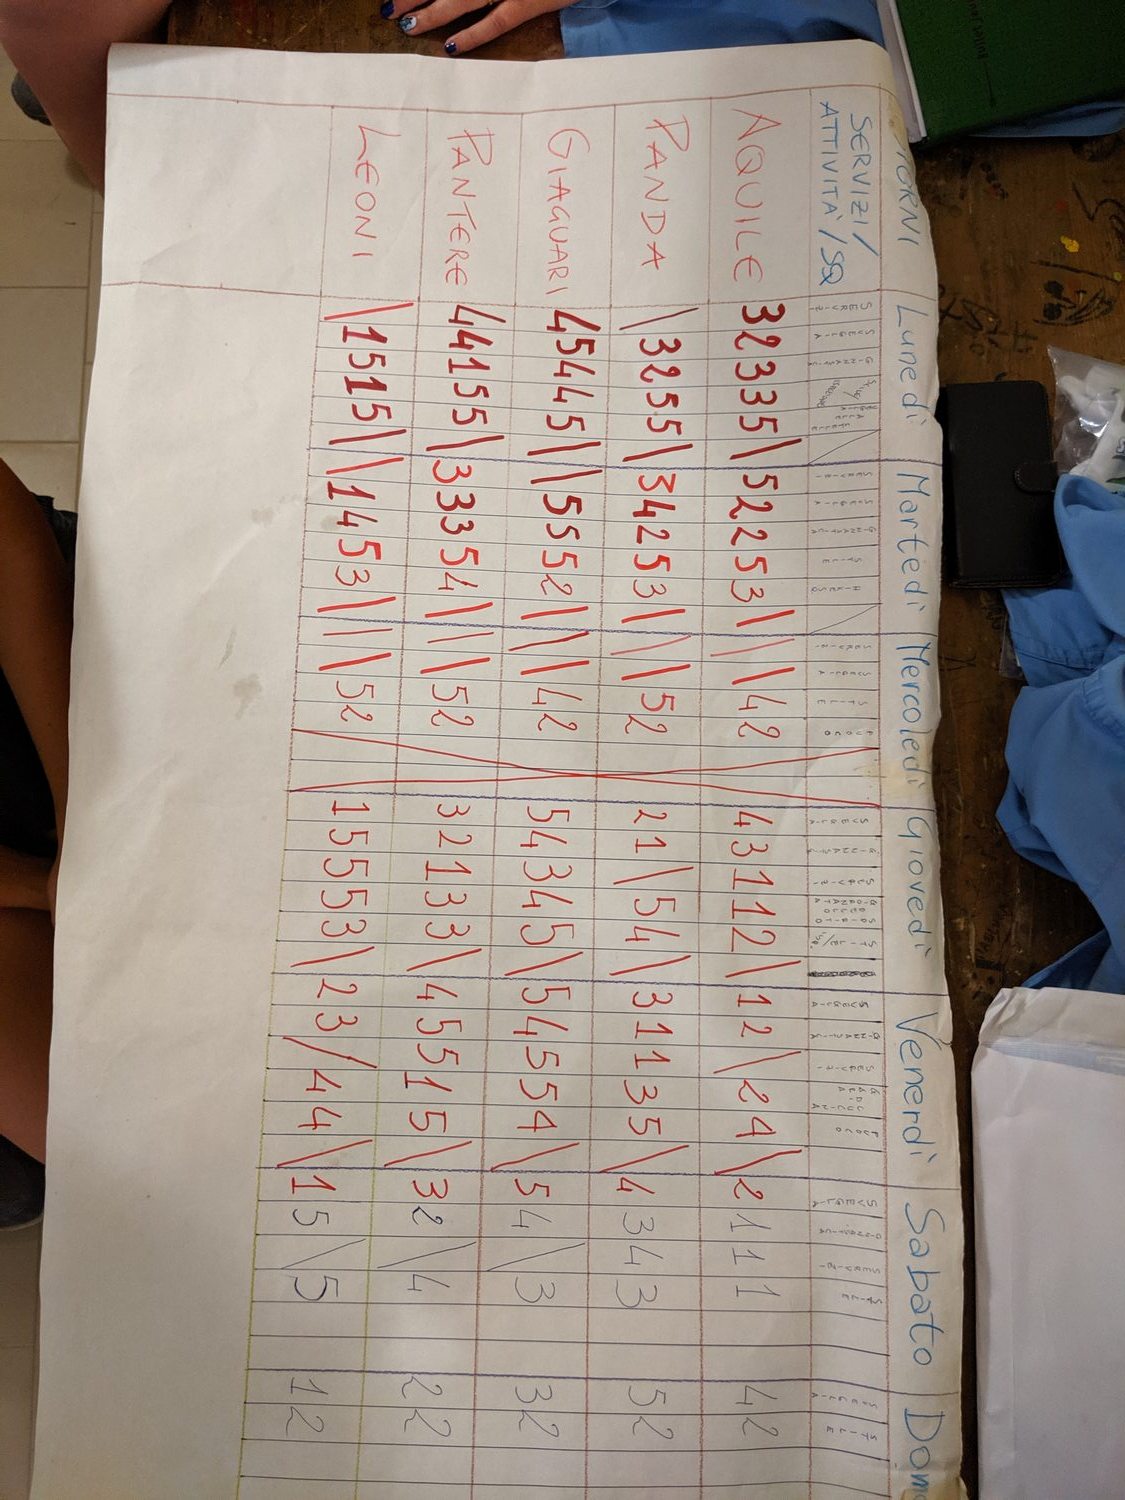 GIORNI Lunedì Martedì Mercoledì Giovedì Venerdì Sabato Dom
SERVIZI/
ATTIVITÀ/SQ
AQUILE 3 2 3 3 5 \ 5 2 2 5 3 \ \ \ 4 2 4 3 1 1 2 \ 1 2 \ 2 4 \ 2 1 1 1 4 2
PANDA \ 3 2 5 5 \ 3 4 2 5 3 \ \ \ 5 2 2 1 \ 5 4 \ 3 1 1 3 5 \ 4 3 4 3 5 2
GIAGUARI 4 5 4 4 5 \ \ 5 5 5 2 \ \ \ 4 2 5 4 3 4 5 \ 5 4 5 5 4 \ 5 4 \ 3 3 2
PANTERE 4 4 1 5 5 \ 3 3 3 5 4 \ \ \ 5 2 3 2 1 3 3 \ 4 5 5 1 5 \ 3 2 \ 4 2 2
LEONI \ 1 5 1 5 \ \ 1 4 5 3 \ \ \ 5 2 1 5 5 5 3 \ 2 3 / 4 4 \ 1 5 \ 5 1 2